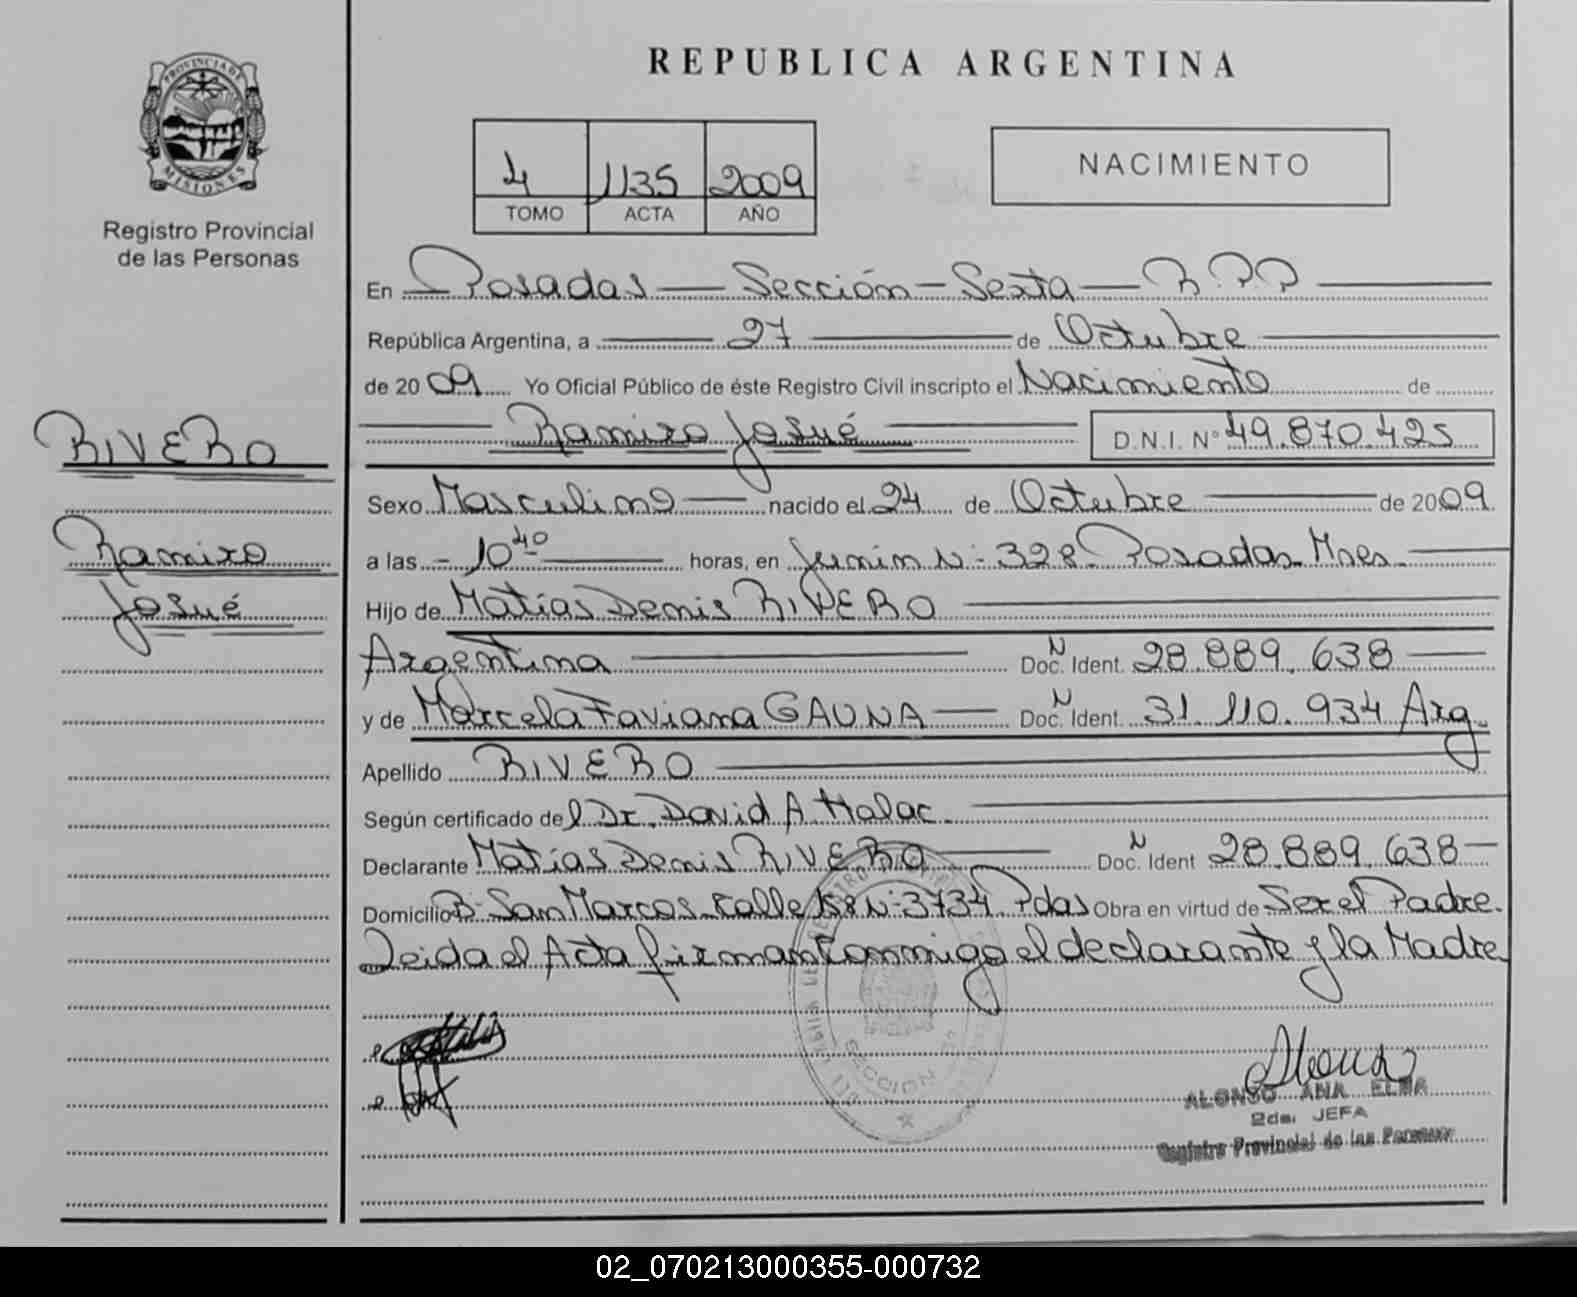 PROVINCIA DE
MISIONES
Registro Provincial
de las Personas
RIVERO
Ramiro
Josué
REPUBLICA ARGENTINA
4 1135 2009
TOMO ACTA AÑO
NACIMIENTO
En Posadas — Sección — Sexta — R.P.P
República Argentina, a 27 de Octubre
de 2009 Yo Oficial Público de éste Registro Civil inscripto el Nacimiento de
Ramiro Josué D.N.I. Nº 49.870.425
Sexo Masculino nacido el 24 de Octubre de 2009
a las - 10 40 horas, en Junin N: 328 Posadas Mnes.
Hijo de Matías Denis RIVERO
Argentina Doc. N Ident. 28.889.638
y de Marcela Faviana GAUNA Doc. N Ident. 31.110.934 Arg.
Apellido RIVERO
Según certificado del Dr. David A. Malac.
Declarante Matías Denis RIVERO Doc. N Ident 28.889.638
Domicilio B: San Marcos Calle 158 N: 3734 Pdas Obra en virtud de Ser el Padre.
Leida el Acta firman Conmigo el declarante y la Madre
SECCION
ALONSO ANA ELBA
2da. JEFA
Registro Provincial de las Personas
02_070213000355-000732